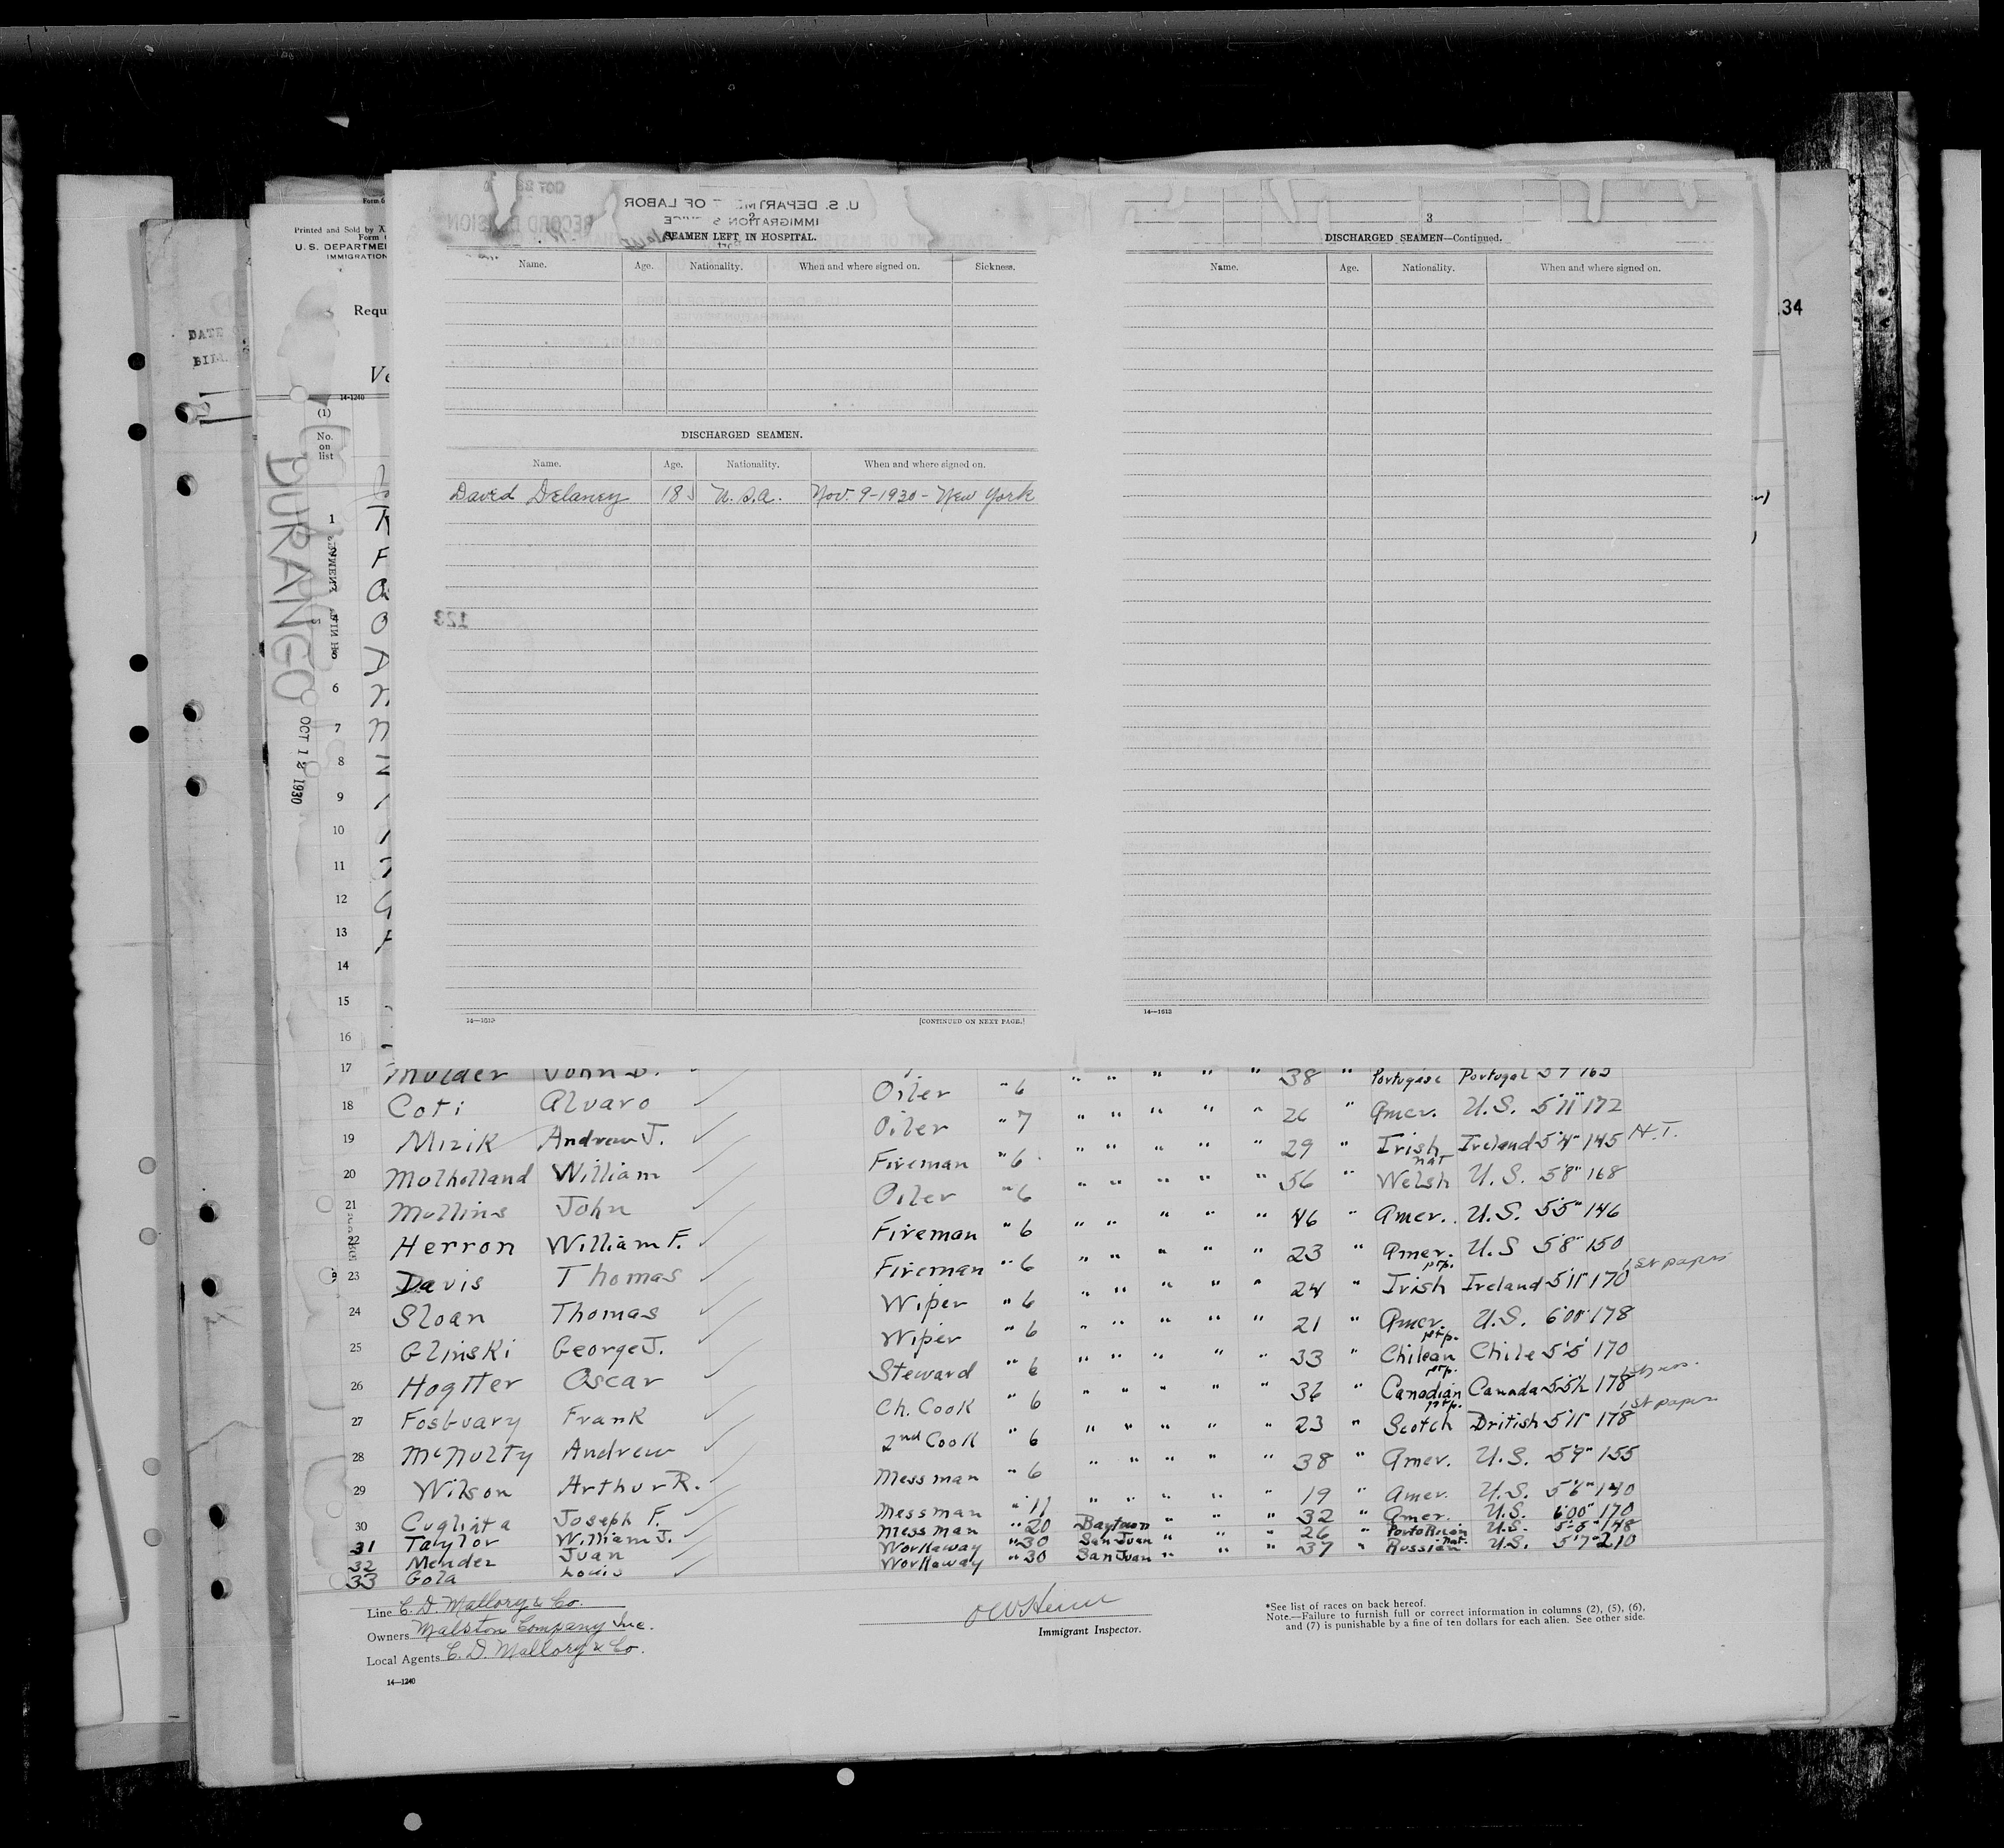 U. S. DEPARTMENT OF LABOR
IMMIGRATION SERVICE
RECORD DIVISION
SEAMEN LEFT IN HOSPITAL.
Name. Age. Nationality. When and where signed on. Sickness.
DISCHARGED SEAMEN.
Name. Age. Nationality. When and where signed on.
David Delaney 18 U.S.A. Nov. 9-1930 - New York
123
14—1613 [CONTINUED ON NEXT PAGE.]
3
DISCHARGED SEAMEN—Continued.
Name. Age. Nationality. When and where signed on.
14—1613
34
Form 6
Printed and Sold by
Form
U. S. DEPARTME
IMMIGRATION
Requ
Ve
DATE
14-1240
(1)
No.
on
list
DURANGO
OCT 12 1930
1
6
7
8
9
10
11
12
13
14
15
16
17 Mulder John D. Oiler " 6 " " " " " 38 " Portugese Portugal 5 7 165
18 Coti Alvaro Oiler " 7 " " " " " 26 " Amer. U.S. 5'11" 172
19 Mizik Andrew J. Fireman " 6 " " " " " 29 " Irish Ireland 5'4" 145 N.T.
20 Mulholland William Oiler " 6 " " " " " 56 " nat Welsh U.S. 5'8" 168
21 Mullins John Fireman " 6 " " " " " 46 " Amer. U.S. 5'5" 146
22 Herron William F. Fireman " 6 " " " " " 23 " Amer. U.S 5'8" 150
23 Davis Thomas Wiper " 6 " " " " " 24 " Irish Ireland 5'11" 170 1st papers
24 Sloan Thomas Wiper " 6 " " " " " 21 " Amer. U.S. 6'00" 178
25 Glinski George J. Steward " 6 " " " " " 33 " Chilean Chile 5'5" 170
26 Hogtter Oscar Ch. Cook " 6 " " " " " 36 " Canadian Canada 5'5½ 178
27 Fosbuary Frank 2nd Cook " 6 " " " " " 23 " Scotch British 5'11" 178 1st papers
28 McNulty Andrew Messman " 6 " " " " " 38 " Amer. U.S. 5'9" 155
29 Wilson Arthur R. Messman " 11 " " " " " 19 " Amer. U.S. 5'6" 140
30 Cuglieta Joseph F. Messman " 20 Baytown " " " " 32 " Amer. U.S. 6'00" 170
31 Taylor William J. Workaway " 30 San Juan " " " " 26 " Porto Rican U.S. 5'5" 148
32 Mendez Juan Workaway " 30 San Juan " " " " 37 " Russian nat. U.S. 5'7" 210
33 Gola Louis
Line C. D. Mallory & Co.
Owners Malston Company Inc.
Local Agents C. D. Mallory & Co.
14—1240
Immigrant Inspector.
*See list of races on back hereof.
Note.—Failure to furnish full or correct information in columns (2), (5), (6),
and (7) is punishable by a fine of ten dollars for each alien. See other side.